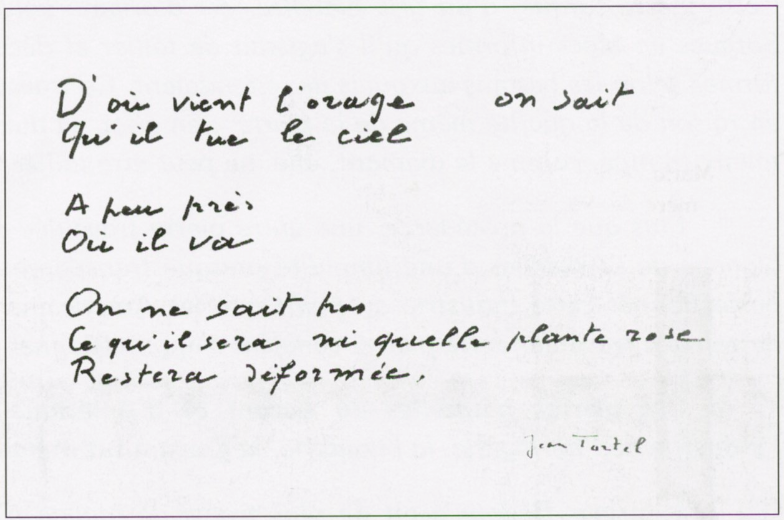 D'où vient l'orage on sait
Qu'il tue le ciel
A peu près
Où il va
On ne sait pas
Ce qu'il sera ni quelle plante rose
Restera déformée.
Jean Tortel